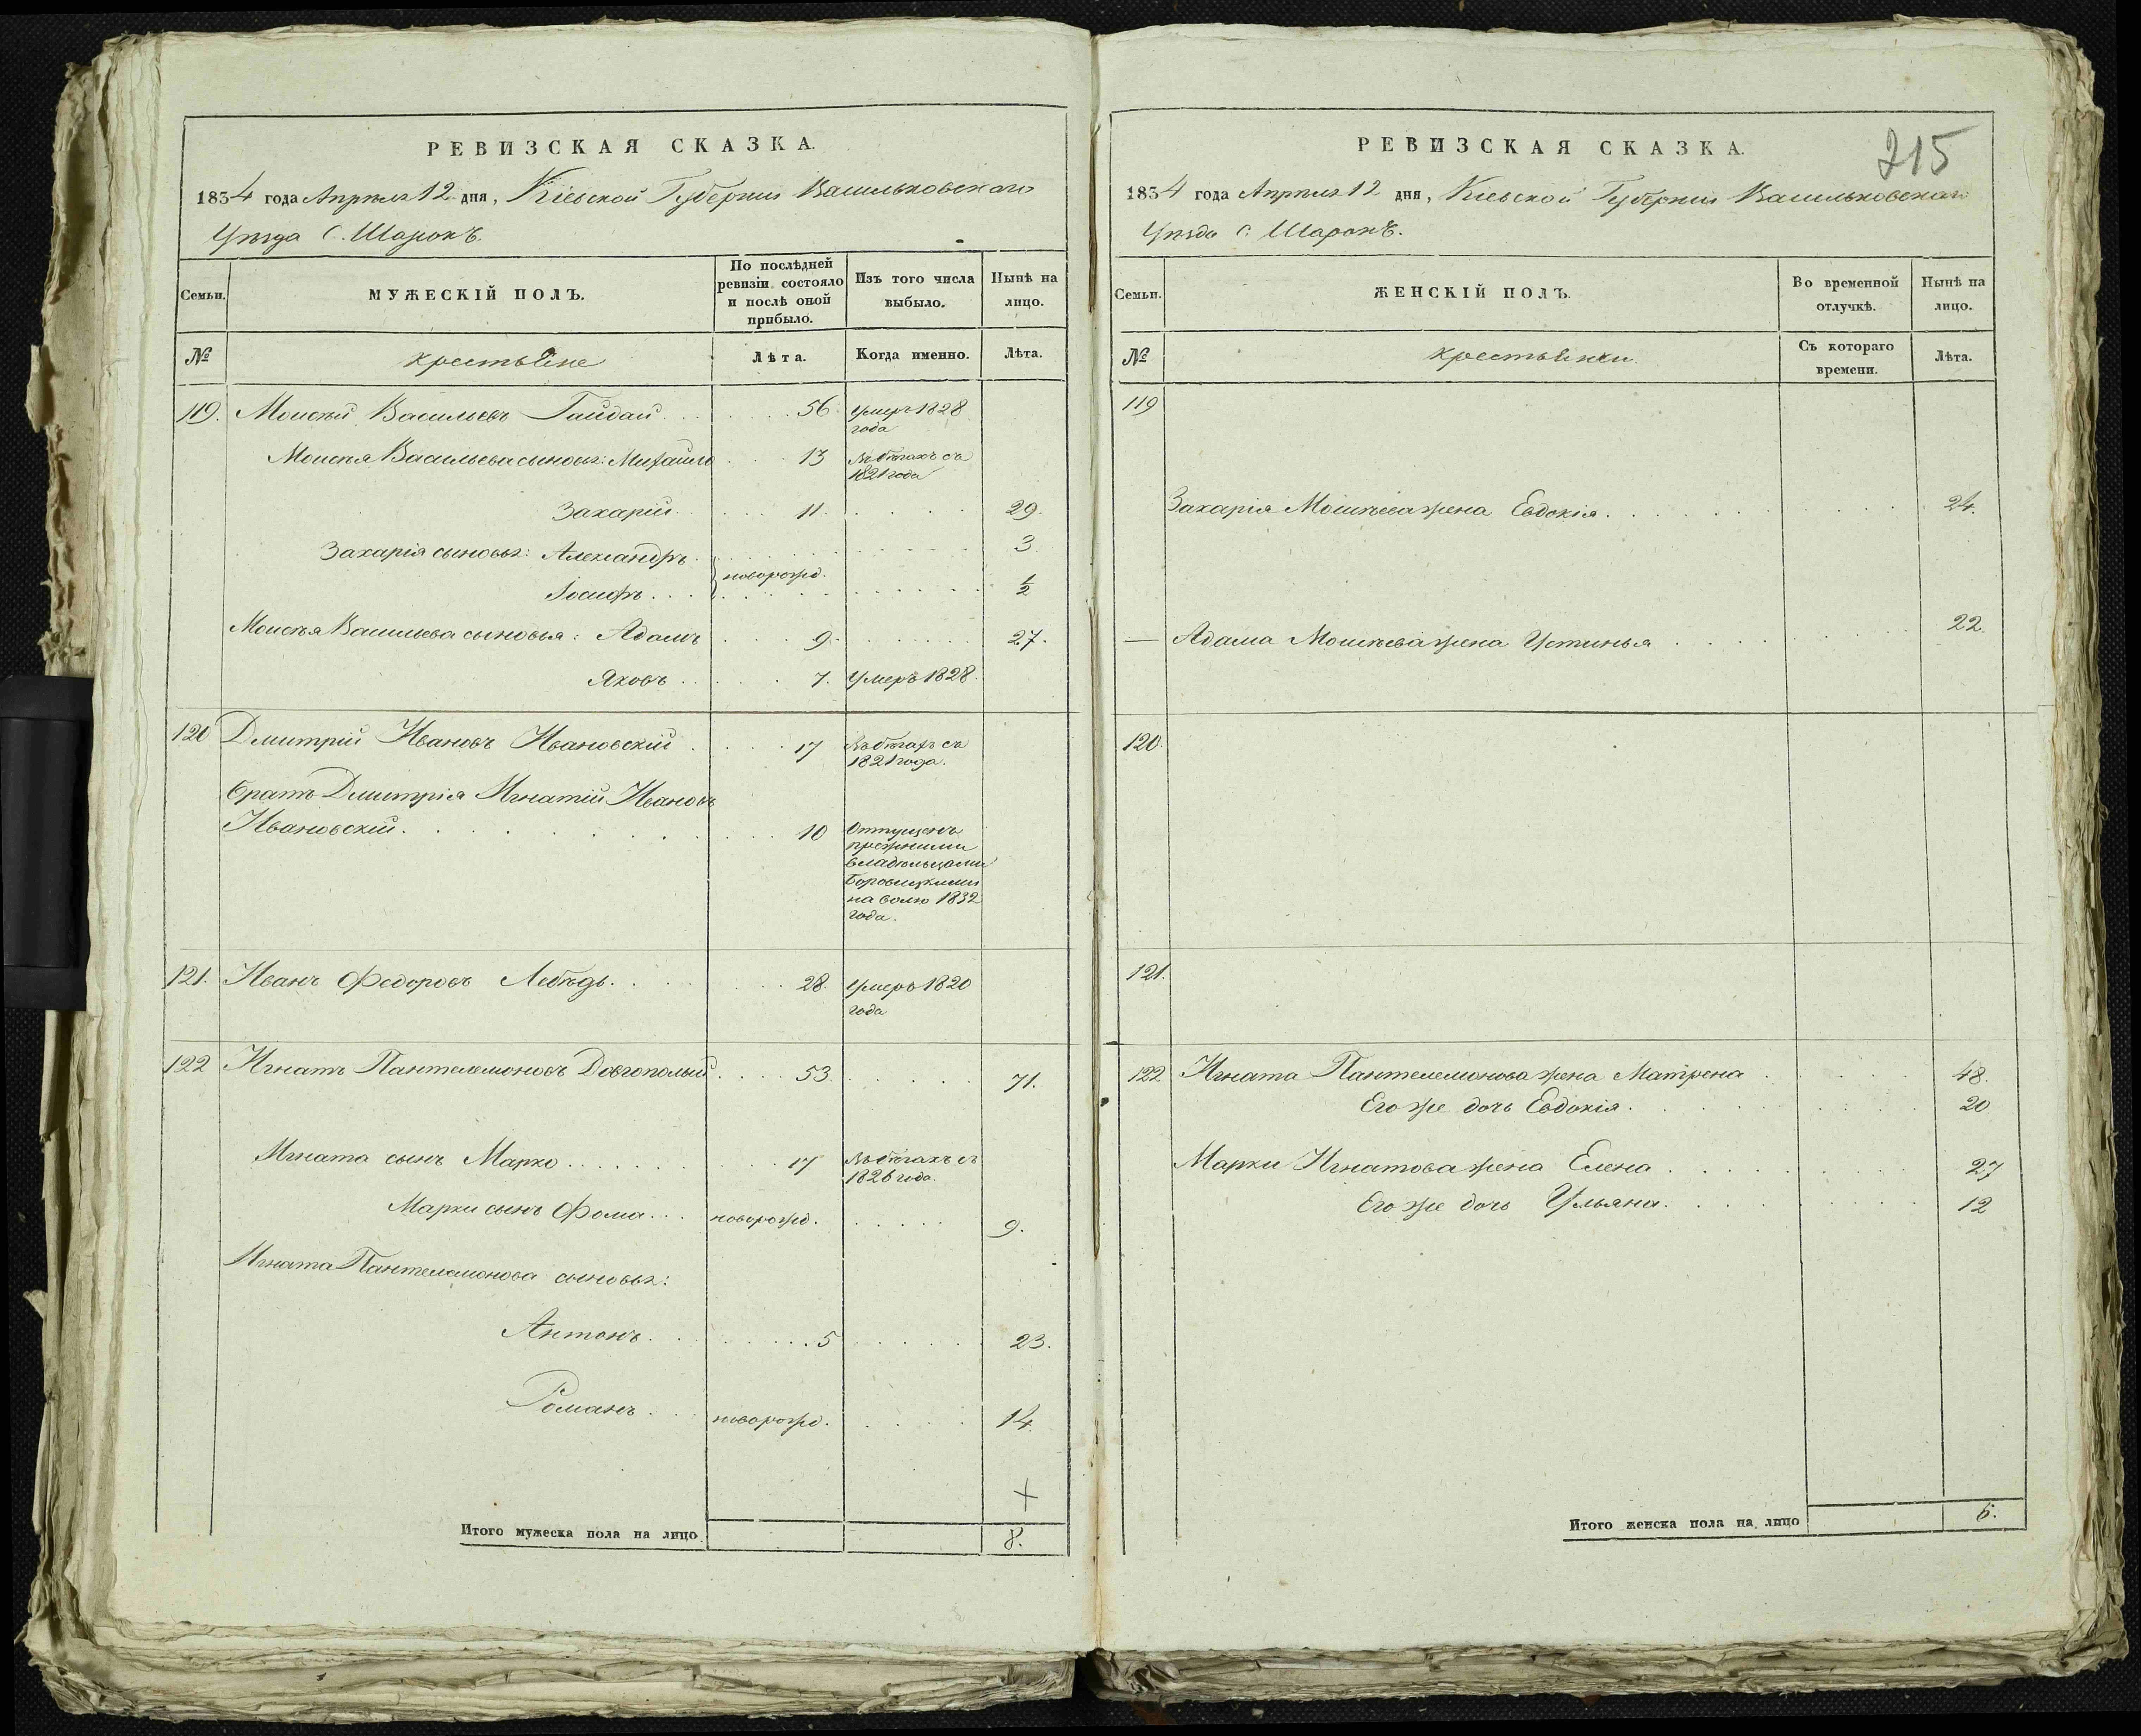 РЕВИЗСКАЯ СКАЗКА.
1834 года Апрѣля 12 дня, Кіевской Губерніи Васильковскаго
Уѣзда С. Шарокъ.
Семьи.
МУЖЕСКІЙ ПОЛЪ.
По послѣдней ревизіи состояло и послѣ оной прибыло.
Изъ того числа выбыло.
Нынѣ на лицо.
№
крестьяне
Лѣта.
Когда именно.
Лѣта.
119. Моисей Васильевъ Гайдай 56. умеръ 1828
года
Моисея Васильева сыновья: Михайло 13 въ бѣгахъ съ
1821 года
Захарій 11. 29.
Захарія сыновья: Александръ 3.
новорожд.
Іосифъ 1/2
Моисея Васильева сыновья: Адамъ 9. 27.
Яковъ 7. Умеръ 1828.
120 Дмитрій Ивановъ Ивановскій 17 въ бѣгахъ съ
1821 года.
братъ Дмитрія Игнатій Ивановъ
Ивановскій 10 Отпущенъ
прежними
владѣльцами
на волю 1832
года.
121. Иванъ Федоровъ Лебѣдь 28. умеръ 1820
года
122 Игнатъ Пантелемоновъ Довгополый 53. 71.
Игната сынъ Марко 17 въ бѣгахъ съ
1826 года.
Марки сынъ Фома новорожд. 9.
Игната Пантелемонова сыновья:
Антонъ 5 23.
Романъ новорожд. 14.
+
Итого мужеска пола на лицо 8.
РЕВИЗСКАЯ СКАЗКА.
215
1834 года Апрѣля 12 дня, Кіевской Губерніи Васильковскаго
Уѣзда С. Шарокъ.
Семьи.
ЖЕНСКІЙ ПОЛЪ.
Во временной отлучкѣ.
Нынѣ на лицо.
№
крестьянки
Съ котораго времени.
Лѣта.
119
Захарія Моисѣева жена Евдокія 24.
— Адама Моисѣева жена Устинья 22.
120.
121.
122 Игната Пантелемонова жена Матрена 48.
Его же дочь Евдокія 20
Марки Игнатова жена Елена 27
Его же дочь Ульяна 12
Итого женска пола на лицо 6.